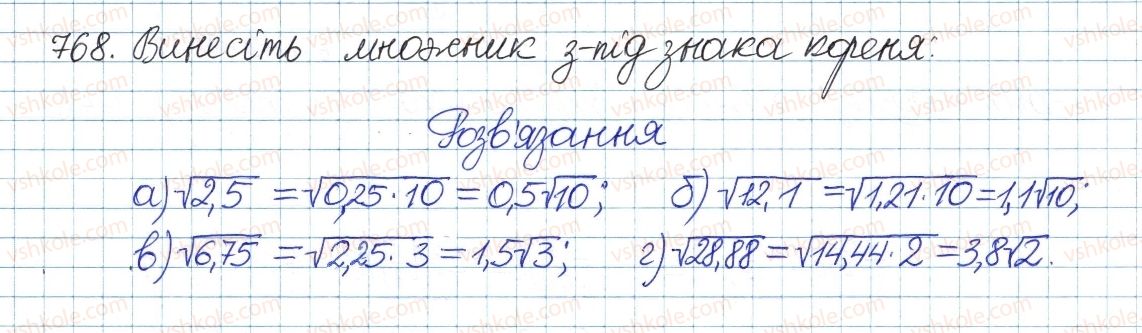 768. Винесіть множник з-під знака кореня:
Розв'язання
а) √2,5 = √0,25·10 = 0,5√10; б) √12,1 = √1,21·10 = 1,1√10;
в) √6,75 = √2,25·3 = 1,5√3; г) √28,88 = √14,44·2 = 3,8√2.